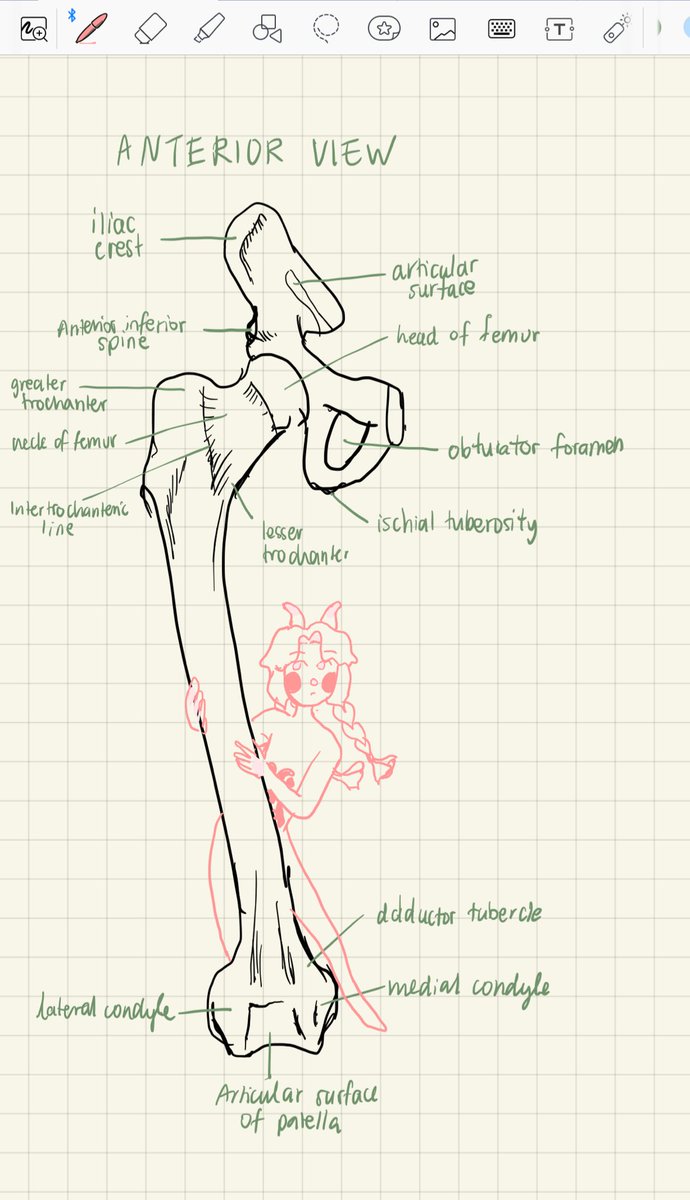 ANTERIOR VIEW
iliac
crest
articular
surface
Anterior inferior
spine
head of femur
greater
trochanter
neck of femur
obturator foramen
Intertrochanteric
line
ischial tuberosity
lesser
trochanter
adductor tubercle
medial condyle
lateral condyle
Articular surface
of patella